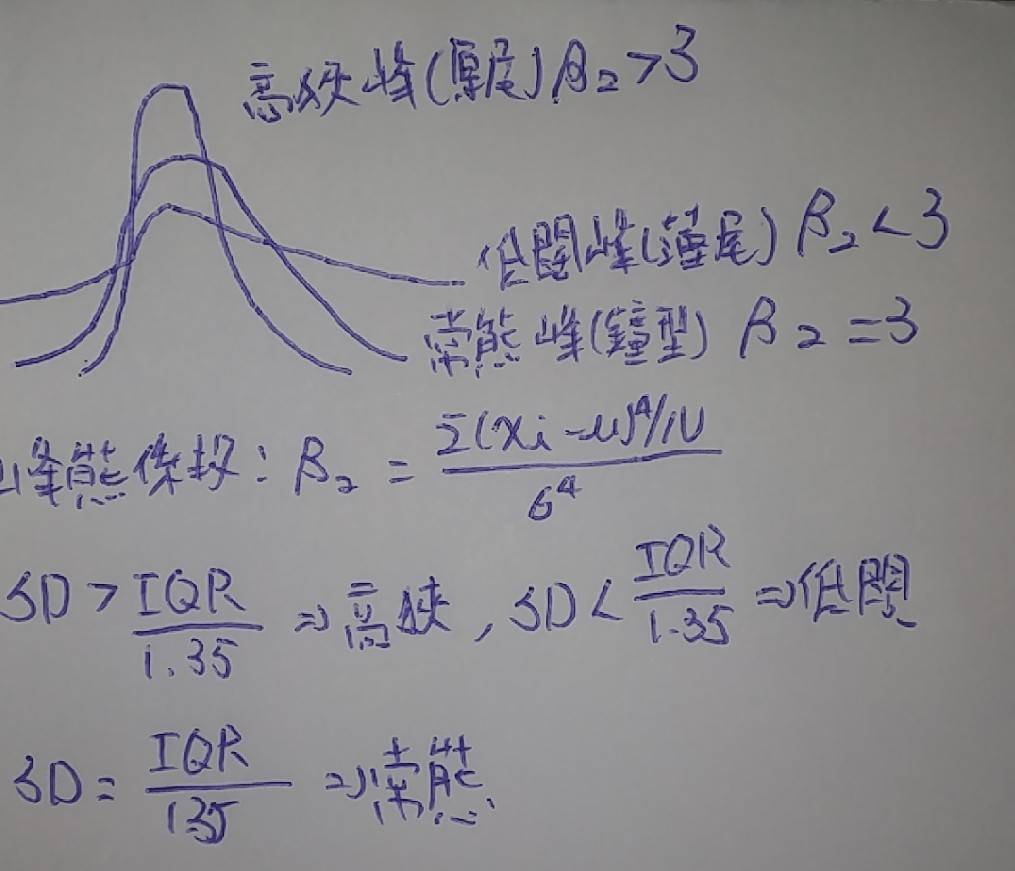 高狹峰(厚尾) β₂>3
低闊峰(薄尾) β₂<3
常態峰(鐘型) β₂=3
峰態係数: β₂ = Σ(xi-μ)⁴/N / σ⁴
SD > IQR/1.35 ⇒ 高狹, SD < IQR/1.35 ⇒ 低闊
SD = IQR/135 ⇒ 常態